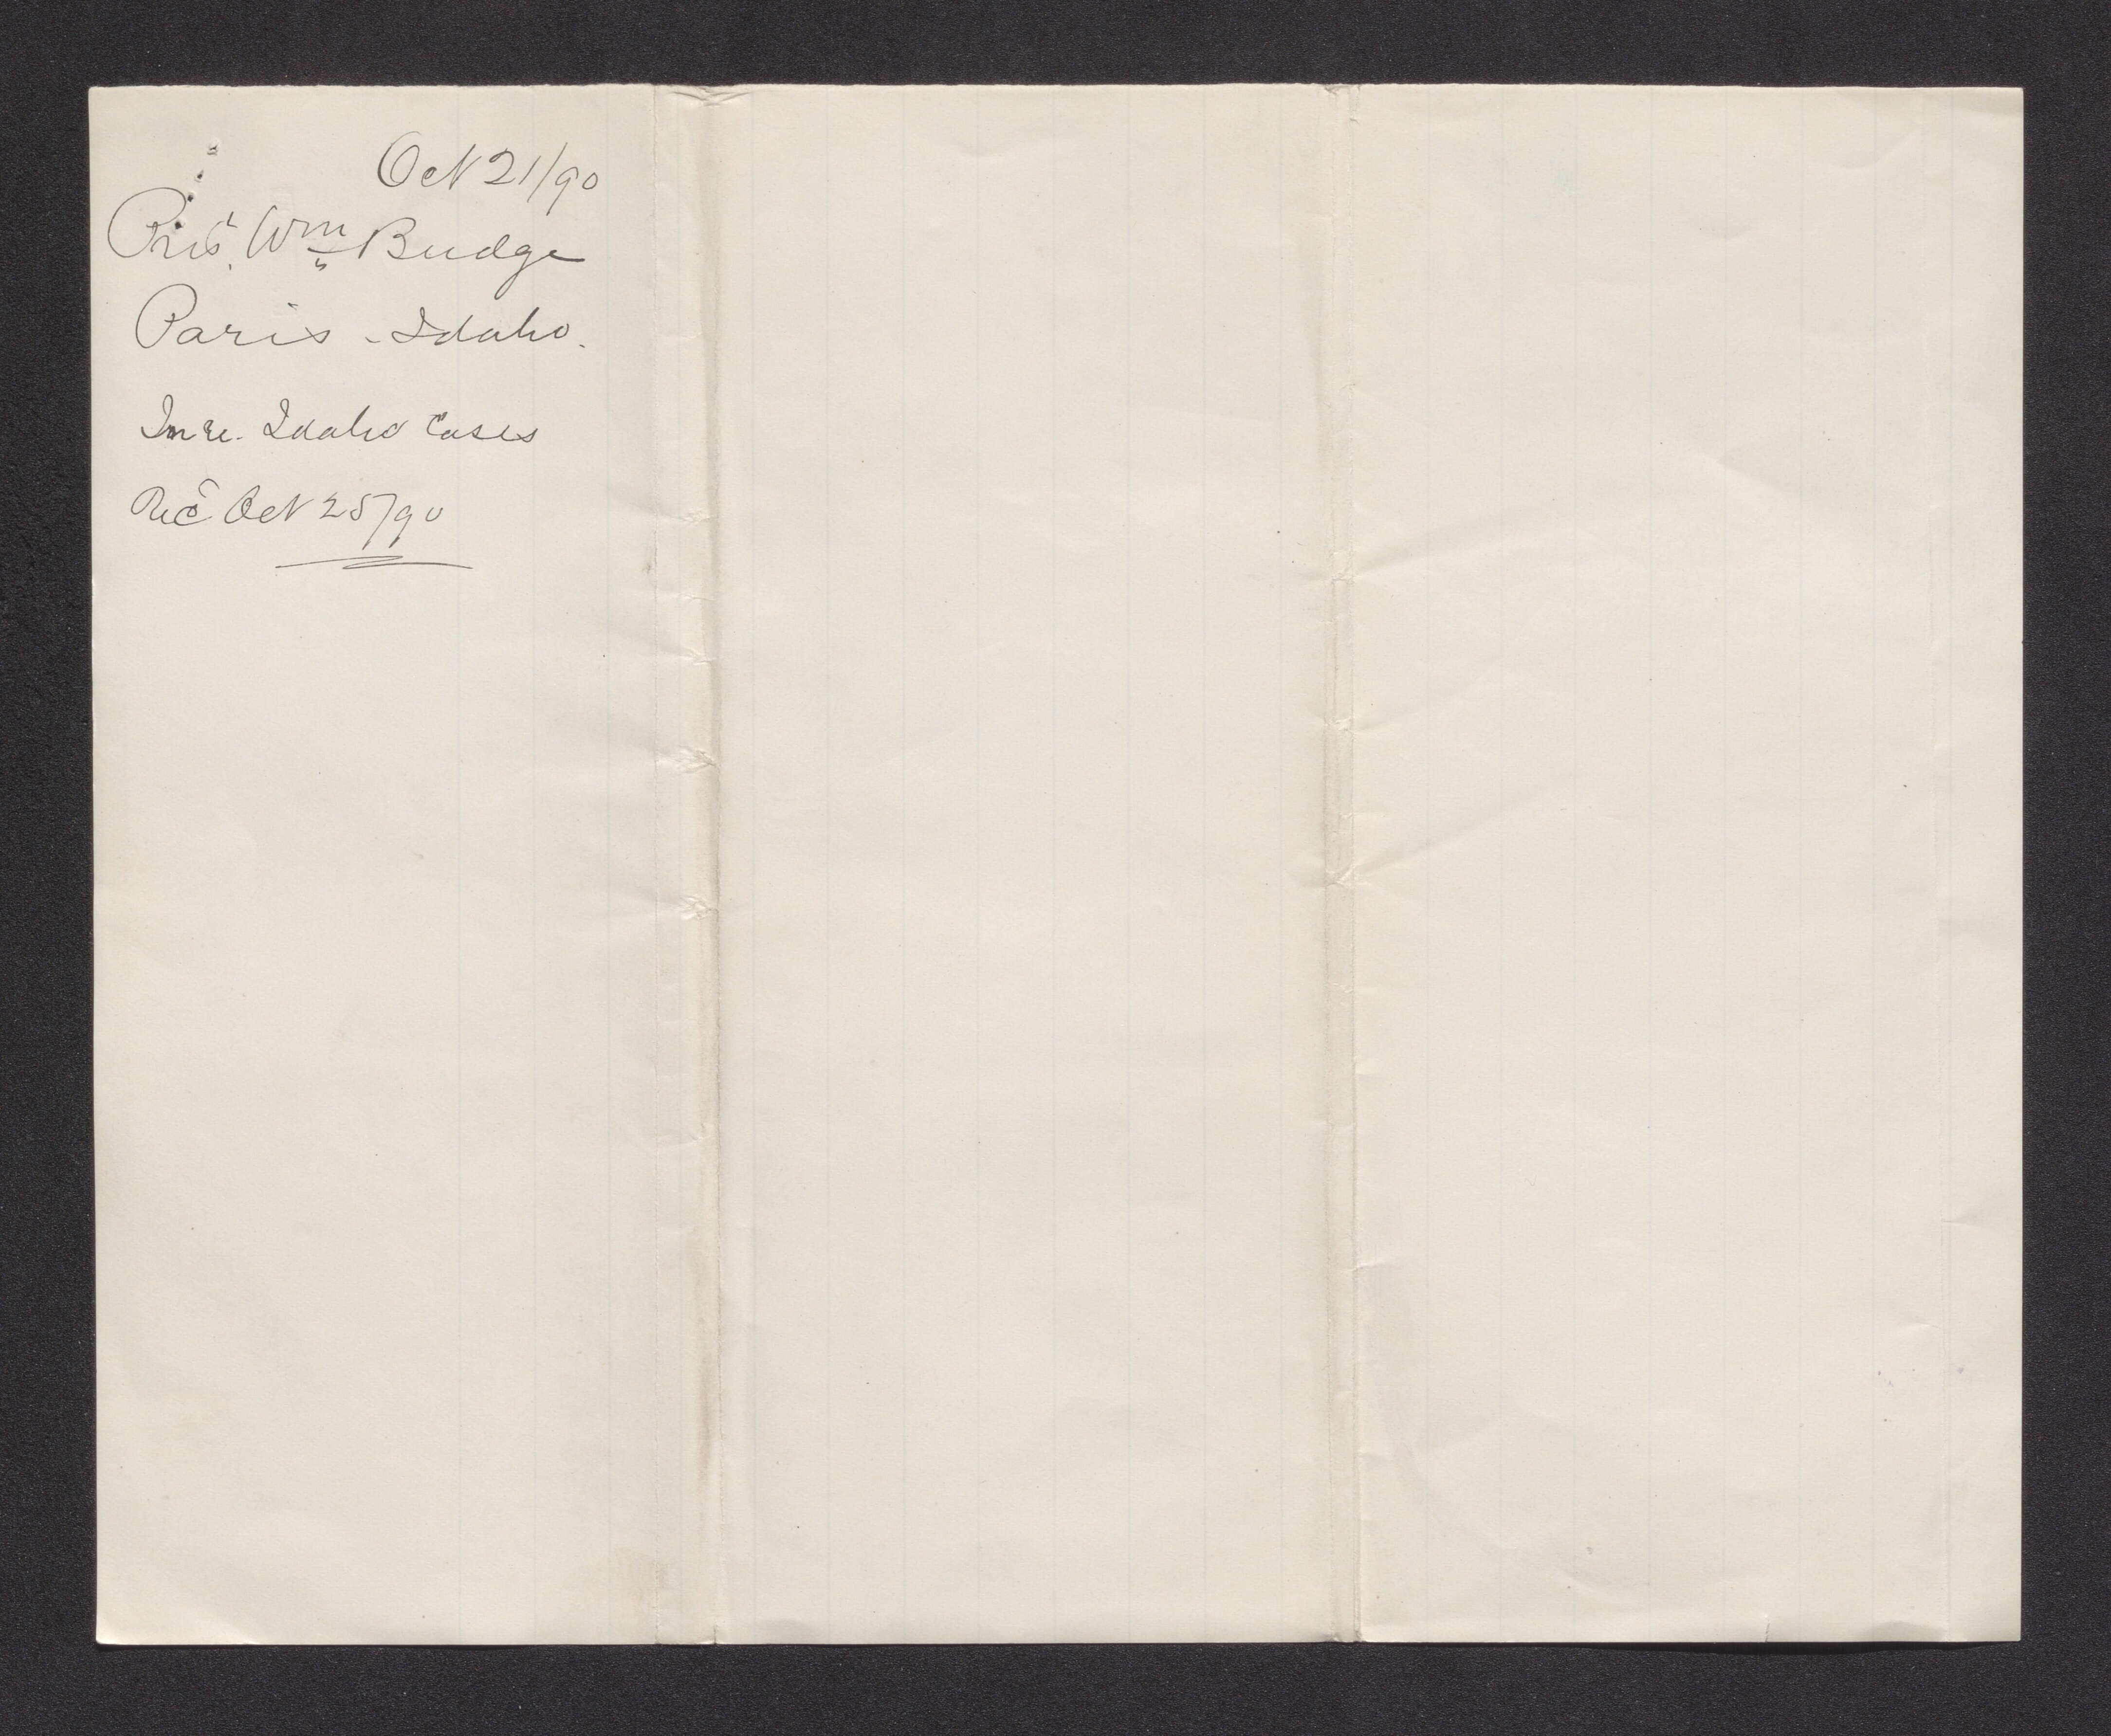 Oct 21/90
Prest. Wm Budge
Paris - Idaho.
In re. Idaho Cases
Recd Oct 25/90